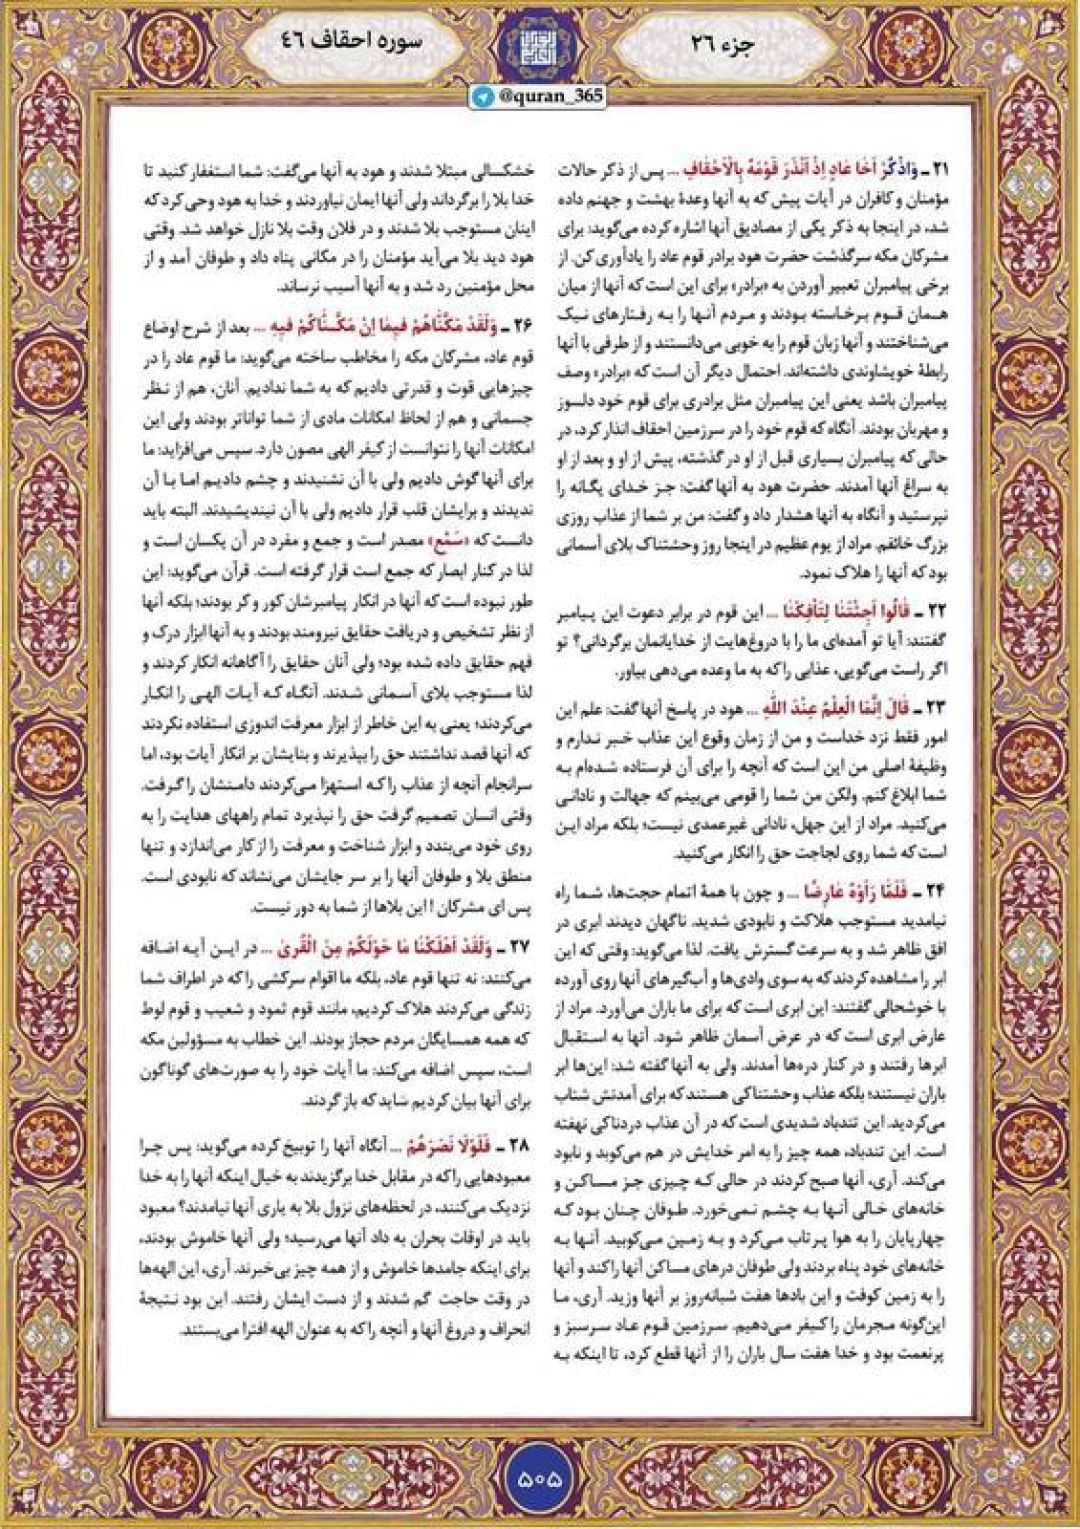 جزء ۲۶
سوره احقاف ٤٦
@quran_365
۲۱ ـ وَاذْكُرْ اَخَا عَادٍ اِذْ اَنْذَرَ قَوْمَهُ بِالْاَحْقَافِ ... پس از ذکر حالات
مؤمنان و کافران در آیات پیش که به آنها وعدۀ بهشت و جهنم داده
شد، در اینجا به ذکر یکی از مصادیق آنها اشاره کرده می‌گوید: برای
مشرکان مکه سرگذشت حضرت هود برادر قوم عاد را یادآوری کن. از
برخی پیامبران تعبیر آوردن به «برادر» برای این است که آنها از میان
همان قوم برخاسته بودند و مردم آنها را به رفتارهای نیک
می‌شناختند و آنها زبان قوم را به خوبی می‌دانستند و از طرفی با آنها
رابطۀ خویشاوندی داشته‌اند. احتمال دیگر آن است که «برادر» وصف
پیامبران باشد یعنی این پیامبران مثل برادری برای قوم خود دلسوز
و مهربان بودند. آنگاه که قوم خود را در سرزمین احقاف انذار کرد، در
حالی که پیامبران بسیاری قبل از او در گذشته، پیش از او و بعد از او
به سراغ آنها آمدند. حضرت هود به آنها گفت: جز خدای یگانه را
نپرستید و آنگاه به آنها هشدار داد و گفت: من بر شما از عذاب روزی
بزرگ خائفم. مراد از یوم عظیم در اینجا روز وحشتناک بلای آسمانی
بود که آنها را هلاک نمود.
۲۲ ـ قَالُوا اَجِئْتَنَا لِتَأْفِكَنَا ... این قوم در برابر دعوت این پیامبر
گفتند: آیا تو آمده‌ای ما را با دروغ‌هایت از خدایانمان برگردانی؟ تو
اگر راست می‌گویی، عذابی را که به ما وعده می‌دهی بیاور.
۲۳ ـ قَالَ اِنَّمَا الْعِلْمُ عِنْدَ اللّٰهِ ... هود در پاسخ آنها گفت: علم این
امور فقط نزد خداست و من از زمان وقوع این عذاب خبر ندارم و
وظیفۀ اصلی من این است که آنچه را برای آن فرستاده شده‌ام به
شما ابلاغ کنم. ولکن من شما را قومی می‌بینم که جهالت و نادانی
می‌کنید. مراد از این جهل، نادانی غیرعمدی نیست؛ بلکه مراد این
است که شما روی لجاجت حق را انکار می‌کنید.
۲۴ ـ فَلَمَّا رَاَوْهُ عَارِضًا ... و چون با همۀ اتمام حجت‌ها، شما راه
نیامدید مستوجب هلاکت و نابودی شدید. ناگهان دیدند ابری در
افق ظاهر شد و به سرعت گسترش یافت. لذا می‌گوید: وقتی که این
ابر را مشاهده کردند که به سوی وادی‌ها و آب‌گیرهای آنها روی آورده
با خوشحالی گفتند: این ابری است که برای ما باران می‌آورد. مراد از
عارض ابری است که در عرض آسمان ظاهر شود. آنها به استقبال
ابرها رفتند و در کنار دره‌ها آمدند. ولی به آنها گفته شد: این‌ها ابر
باران نیستند؛ بلکه عذاب وحشتناکی هستند که برای آمدنش شتاب
می‌کردید. این تندباد شدیدی است که در آن عذاب دردناکی نهفته
است. این تندباد، همه چیز را به امر خدایش در هم می‌کوبد و نابود
می‌کند. آری، آنها صبح کردند در حالی که چیزی جز مساکن و
خانه‌های خالی آنها به چشم نمی‌خورد. طوفان چنان بود که
چهارپایان را به هوا پرتاب می‌کرد و به زمین می‌کوبید. آنها به
خانه‌های خود پناه بردند ولی طوفان درهای مساکن آنها را کند و آنها
را به زمین کوفت و این بادها هفت شبانه‌روز بر آنها وزید. آری، ما
این‌گونه مجرمان را کیفر می‌دهیم. سرزمین قوم عاد سرسبز و
پرنعمت بود و خدا هفت سال باران را از آنها قطع کرد، تا اینکه به
خشکسالی مبتلا شدند و هود به آنها می‌گفت: شما استغفار کنید تا
خدا بلا را برگرداند ولی آنها ایمان نیاوردند و خدا به هود وحی کرد که
اینان مستوجب بلا شدند و در فلان وقت بلا نازل خواهد شد. وقتی
هود دید بلا می‌آید مؤمنان را در مکانی پناه داد و طوفان آمد و از
محل مؤمنین رد شد و به آنها آسیب نرساند.
۲۶ ـ وَلَقَدْ مَكَّنَّاهُمْ فِيمَا اِنْ مَكَّنَّاكُمْ فِيهِ ... بعد از شرح اوضاع
قوم عاد، مشرکان مکه را مخاطب ساخته می‌گوید: ما قوم عاد را در
چیزهایی قوت و قدرتی دادیم که به شما ندادیم. آنان، هم از نظر
جسمانی و هم از لحاظ امکانات مادی از شما تواناتر بودند ولی این
امکانات آنها را نتوانست از کیفر الهی مصون دارد. سپس می‌افزاید: ما
برای آنها گوش دادیم ولی با آن نشنیدند و چشم دادیم اما با آن
ندیدند و برایشان قلب قرار دادیم ولی با آن نیندیشیدند. البته باید
دانست که «سَمْع» مصدر است و جمع و مفرد در آن یکسان است و
لذا در کنار ابصار که جمع است قرار گرفته است. قرآن می‌گوید: این
طور نبوده است که آنها در انکار پیامبرشان کور و کر بودند؛ بلکه آنها
از نظر تشخیص و دریافت حقایق نیرومند بودند و به آنها ابزار درک و
فهم حقایق داده شده بود؛ ولی آنان حقایق را آگاهانه انکار کردند و
لذا مستوجب بلای آسمانی شدند. آنگاه که آیات الهی را انکار
می‌کردند؛ یعنی به این خاطر از ابزار معرفت اندوزی استفاده نکردند
که آنها قصد نداشتند حق را بپذیرند و بنایشان بر انکار آیات بود، اما
سرانجام آنچه از عذاب را که استهزا می‌کردند دامنشان را گرفت.
وقتی انسان تصمیم گرفت حق را نپذیرد تمام راههای هدایت را به
روی خود می‌بندد و ابزار شناخت و معرفت را از کار می‌اندازد و تنها
منطق بلا و طوفان آنها را بر سر جایشان می‌نشاند که نابودی است.
پس ای مشرکان! این بلاها از شما به دور نیست.
۲۷ ـ وَلَقَدْ اَهْلَكْنَا مَا حَوْلَكُمْ مِنَ الْقُرىٰ ... در این آیه اضافه
می‌کنند: نه تنها قوم عاد، بلکه ما اقوام سرکشی را که در اطراف شما
زندگی می‌کردند هلاک کردیم، مانند قوم ثمود و شعیب و قوم لوط
که همه همسایگان مردم حجاز بودند. این خطاب به مسؤولین مکه
است، سپس اضافه می‌کند: ما آیات خود را به صورت‌های گوناگون
برای آنها بیان کردیم شاید که باز گردند.
۲۸ ـ فَلَوْلَا نَصَرَهُمُ ... آنگاه آنها را توبیخ کرده می‌گوید: پس چرا
معبودهایی را که در مقابل خدا برگزیدند به خیال اینکه آنها را به خدا
نزدیک می‌کنند، در لحظه‌های نزول بلا به یاری آنها نیامدند؟ معبود
باید در اوقات بحران به داد آنها می‌رسید؛ ولی آنها خاموش بودند،
برای اینکه جامدها خاموش و از همه چیز بی‌خبرند. آری، این الهه‌ها
در وقت حاجت گم شدند و از دست ایشان رفتند. این بود نتیجۀ
انحراف و دروغ آنها و آنچه را که به عنوان الهه افترا می‌بستند.
۵۰۵